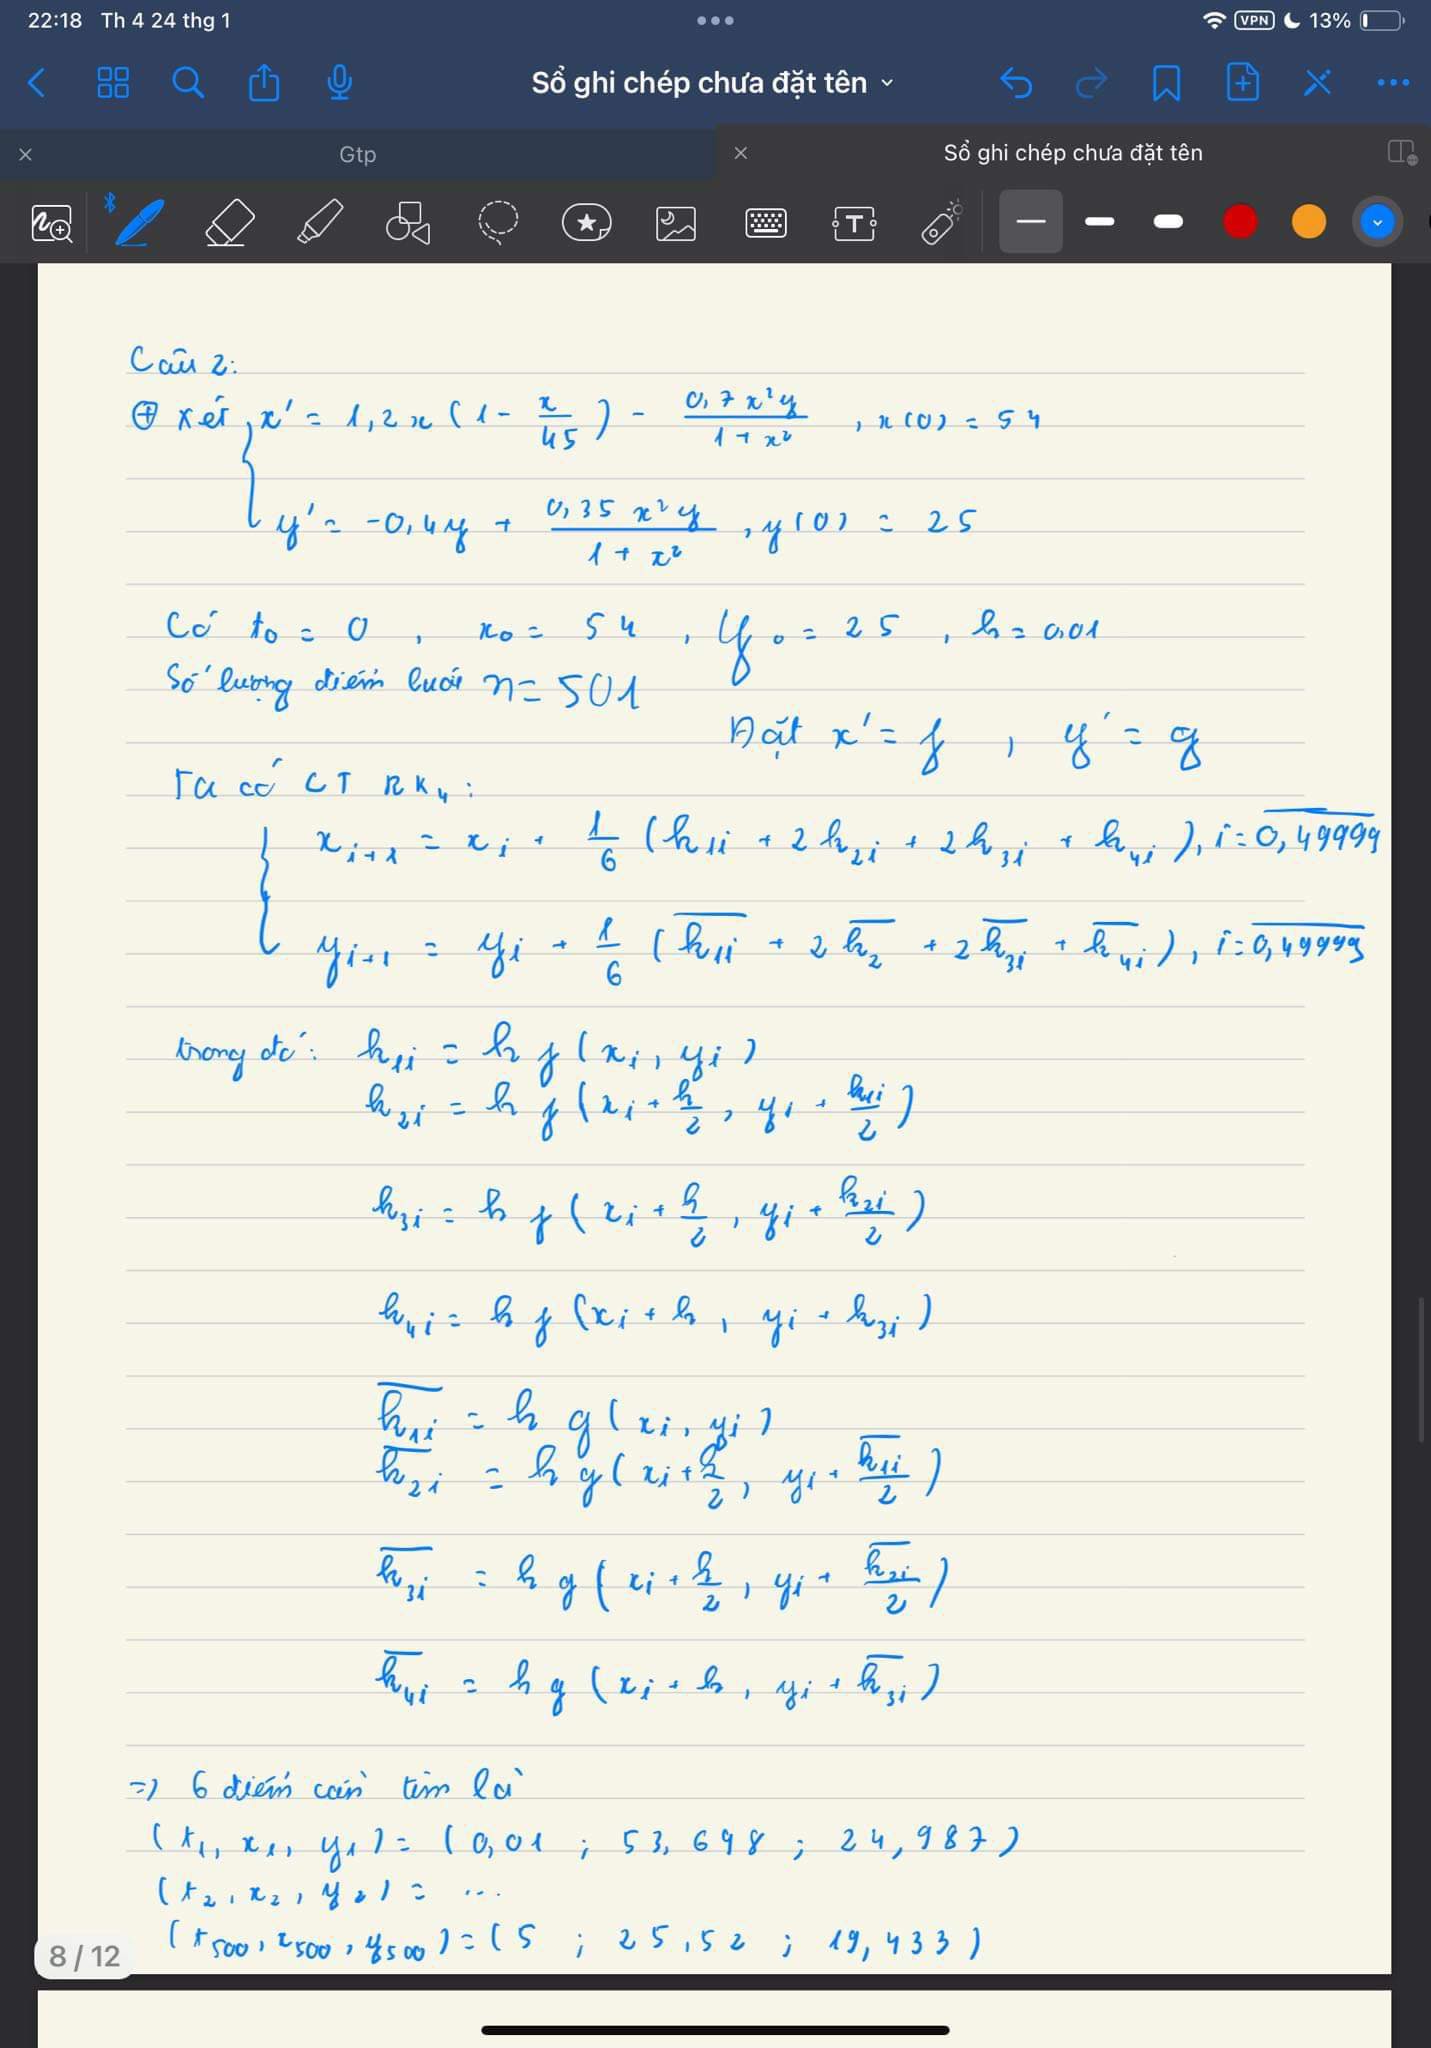 22:18 Th 4 24 thg 1
VPN 13%
Sổ ghi chép chưa đặt tên
Gtp
Sổ ghi chép chưa đặt tên
T
Câu 2:
⊕ Xét { x' = 1,2x (1 - x/45) - 0,7x²y/(1 + x²) , x(0) = 54
y' = -0,4y + 0,35x²y/(1 + x²) , y(0) = 25
Có t₀ = 0 , x₀ = 54 , y₀ = 25 , h = 0,01
Số lượng điểm lưới n = 501
Đặt x' = f , y' = g
Ta có CT RK₄ :
{ xᵢ₊₁ = xᵢ + 1/6 (k₁ᵢ + 2k₂ᵢ + 2k₃ᵢ + k₄ᵢ), i = \overline{0,49999}
yᵢ₊₁ = yᵢ + 1/6 (\overline{k₁ᵢ} + 2\overline{k₂} + 2\overline{k₃ᵢ} + \overline{k₄ᵢ}), i = \overline{0,49999}
trong đó: k₁ᵢ = h f(xᵢ, yᵢ)
k₂ᵢ = h f(xᵢ + h/2, yᵢ + k₁ᵢ/2)
k₃ᵢ = h f(xᵢ + h/2, yᵢ + k₂ᵢ/2)
k₄ᵢ = h f(xᵢ + h, yᵢ + k₃ᵢ)
\overline{k₁ᵢ} = h g(xᵢ, yᵢ)
\overline{k₂ᵢ} = h g(xᵢ + h/2, yᵢ + \overline{k₁ᵢ}/2)
\overline{k₃ᵢ} = h g(xᵢ + h/2, yᵢ + \overline{k₂ᵢ}/2)
\overline{k₄ᵢ} = h g(xᵢ + h, yᵢ + \overline{k₃ᵢ})
=> 6 điểm cần tìm là
(t₁, x₁, y₁) = (0,01 ; 53,698 ; 24,987)
(t₂, x₂, y₂) = ...
(t₅₀₀, x₅₀₀, y₅₀₀) = (5 ; 25,52 ; 19,433)
8 / 12